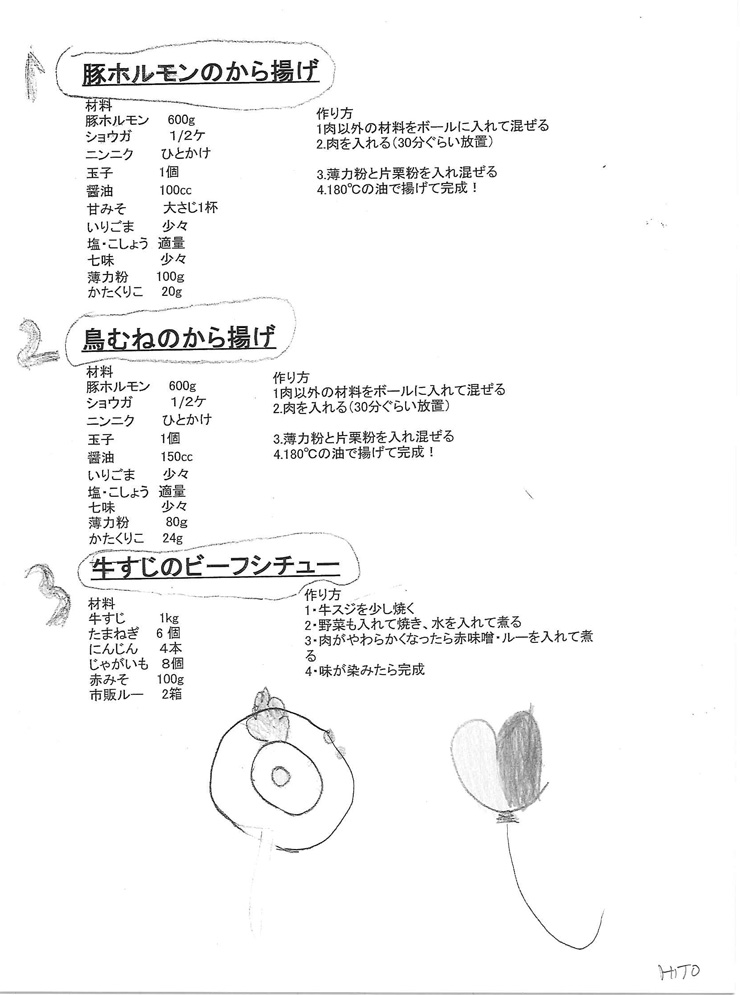 1
豚ホルモンのから揚げ
材料
豚ホルモン 600g
ショウガ 1/2ケ
ニンニク ひとかけ
玉子 1個
醤油 100cc
甘みそ 大さじ1杯
いりごま 少々
塩・こしょう 適量
七味 少々
薄力粉 100g
かたくりこ 20g
作り方
1肉以外の材料をボールに入れて混ぜる
2.肉を入れる(30分ぐらい放置)
3.薄力粉と片栗粉を入れ混ぜる
4.180℃の油で揚げて完成!
2
鳥むねのから揚げ
材料
豚ホルモン 600g
ショウガ 1/2ケ
ニンニク ひとかけ
玉子 1個
醤油 150cc
いりごま 少々
塩・こしょう 適量
七味 少々
薄力粉 80g
かたくりこ 24g
作り方
1肉以外の材料をボールに入れて混ぜる
2.肉を入れる(30分ぐらい放置)
3.薄力粉と片栗粉を入れ混ぜる
4.180℃の油で揚げて完成!
3
牛すじのビーフシチュー
材料
牛すじ 1kg
たまねぎ 6個
にんじん 4本
じゃがいも 8個
赤みそ 100g
市販ルー 2箱
作り方
1・牛スジを少し焼く
2・野菜も入れて焼き、水を入れて煮る
3・肉がやわらかくなったら赤味噌・ルーを入れて煮
る
4・味が染みたら完成
HITO